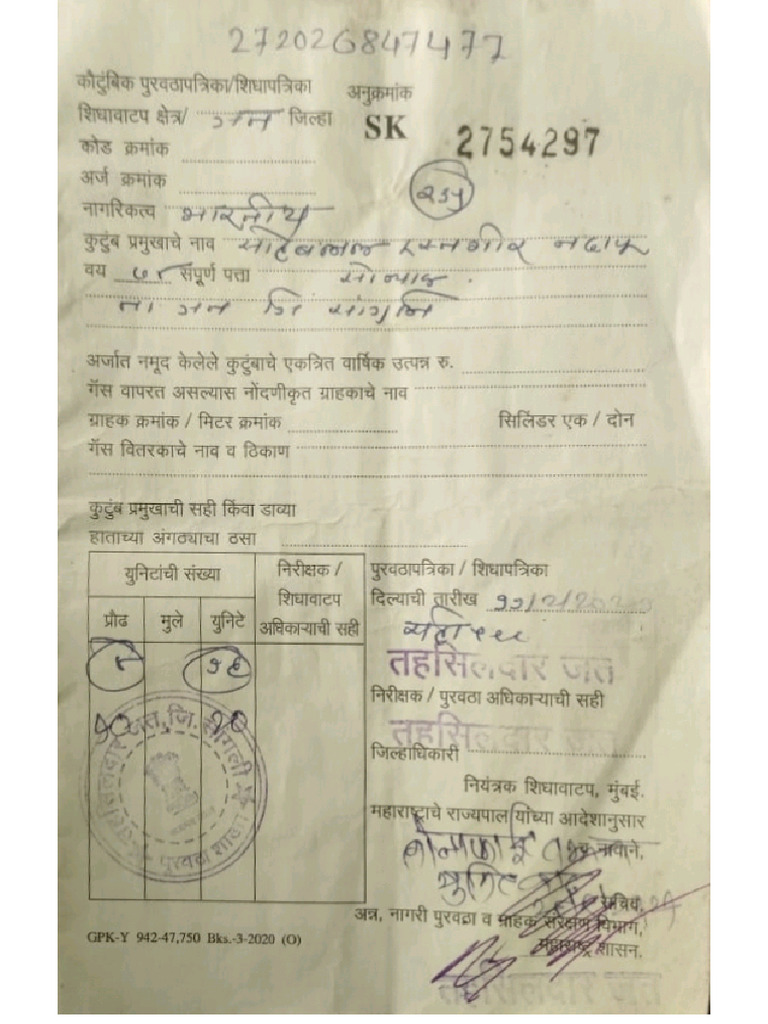 272026847477
कौटुंबिक पुरवठापत्रिका/शिधापत्रिका
अनुक्रमांक
शिधावाटप क्षेत्र/ जत जिल्हा
SK 2754297
कोड क्रमांक
अर्ज क्रमांक
नागरिकत्व भारतीय
कुटुंब प्रमुखाचे नाव साहेबलाल दस्तगीर नदाफ
वय संपूर्ण पत्ता सोन्याळ
ता जत जि सांगली
अर्जात नमूद केलेले कुटुंबाचे एकत्रित वार्षिक उत्पन्न रु.
गॅस वापरत असल्यास नोंदणीकृत ग्राहकाचे नाव
ग्राहक क्रमांक / मिटर क्रमांक सिलिंडर एक / दोन
गॅस वितरकाचे नाव व ठिकाण
कुटुंब प्रमुखाची सही किंवा डाव्या
हाताच्या अंगठ्याचा ठसा
युनिटांची संख्या
प्रौढ मुले युनिटे
निरीक्षक /
शिधावाटप
अधिकाऱ्याची सही
तहसिलदार जत, जि. सांगली
पुरवठा शाखा
पुरवठापत्रिका / शिधापत्रिका
दिल्याची तारीख
तहसिलदार जत
निरीक्षक / पुरवठा अधिकाऱ्याची सही
तहसिलदार जत
जिल्हाधिकारी
नियंत्रक शिधावाटप, मुंबई.
महाराष्ट्राचे राज्यपाल यांच्या आदेशानुसार
व नावाने,
सचिव,
अन्न, नागरी पुरवठा व ग्राहक संरक्षण विभाग,
महाराष्ट्र शासन.
तहसिलदार जत
GPK-Y 942-47,750 Bks.-3-2020 (O)